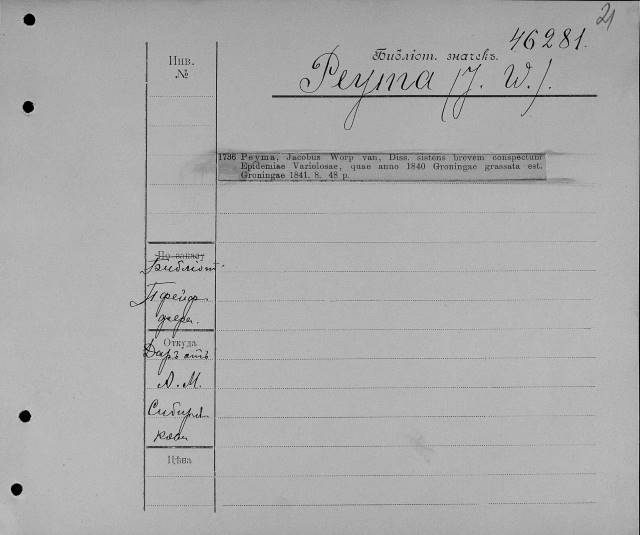 21
46281.
Инв.
№
Библіот. значекъ.
Peyma (J. W.).
1736 Peyma, Jacobus Worp van, Diss. sistens brevem conspectum
Epidemiae Variolosae, quae anno 1840 Groningae grassata est.
Groningae 1841. 8. 48 p.
По заказу
Библіот.
Пфейф
фера.
Откуда
Даръ отъ
А. М.
Сибиря
кова
Цѣна